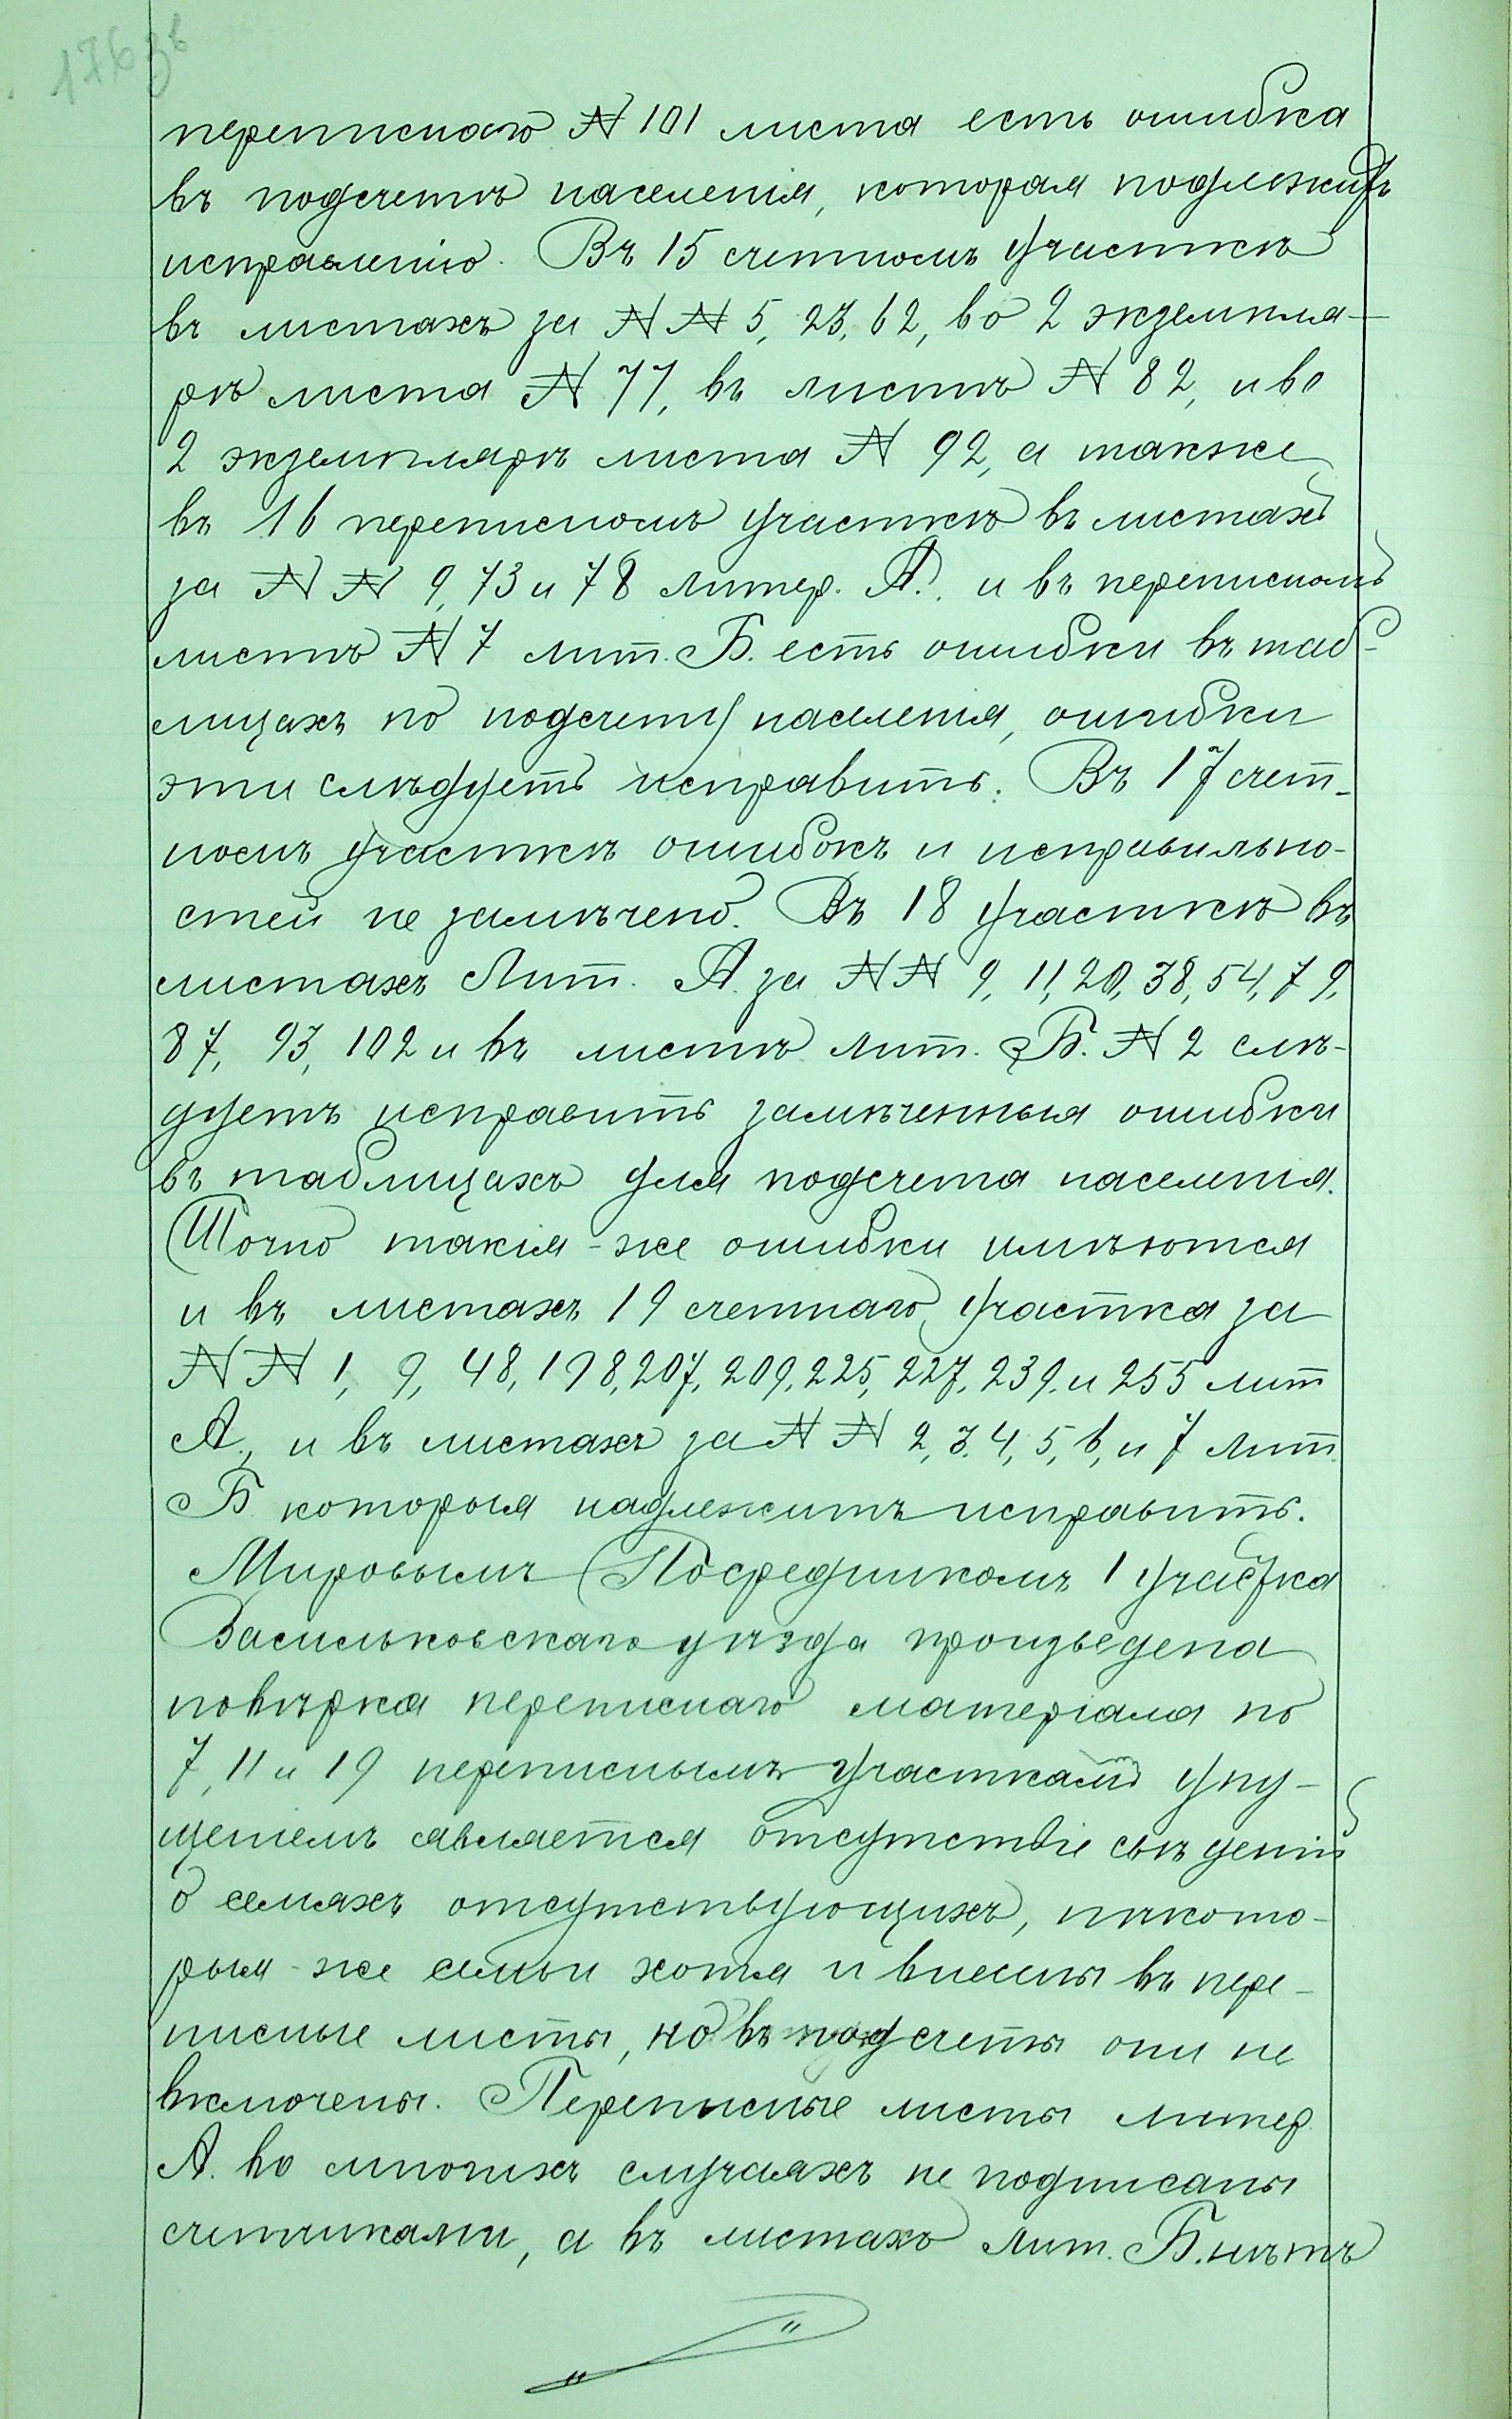 176 зв
переписнаго № 101 листа есть ошибка
въ подсчетѣ населенія, которая подлежитъ
исправленію. Въ 15 счетномъ участкѣ
въ листахъ за №№ 5, 23, 62, во 2 экземпля-
рѣ листа № 77, въ листѣ № 82, и во
2 экземплярѣ листа № 92, а также
въ 16 переписномъ участкѣ въ листахъ
за №№ 9, 73 и 78 литер. А., и въ переписномъ
листѣ № 7 лит. Б. есть ошибки въ таб-
лицахъ по подсчету населенія, ошибки
эти слѣдуетъ исправить. Въ 17 счет-
номъ участкѣ ошибокъ и неправильно-
стей не замѣчено. Въ 18 участкѣ въ
листахъ Лит. А. за №№ 9, 11, 20, 38, 54, 79,
87, 93, 102 и въ листѣ лит. Б. № 2 слѣ-
дуетъ исправить замѣченныя ошибки
въ таблицахъ для подсчета населенія.
Точно такія-же ошибки имѣются
и въ листахъ 19 счетнаго участка за
№№ 1, 9, 48, 198, 207, 209, 225, 227, 239, и 255 лит
А., и въ листахъ за №№ 2, 3, 4, 5, 6, и 7 лит.
Б которыя надлежитъ исправить.
Мировымъ Посредникомъ 1 участка
Васильковскаго уѣзда произведена
повѣрка переписнаго матеріала по
7, 11 и 19 переписнымъ участкамъ упу-
щеніемъ является отсутствіе свѣденій
о семьяхъ отсутствующихъ, нѣкото-
рыя-же семьи хотя и внесены въ пере-
писные листы, но въ подсчеты они не
включены. Переписные листы литер.
А. во многихъ случаяхъ не подписаны
счетчиками, а въ листахъ лит. Б. нѣтъ